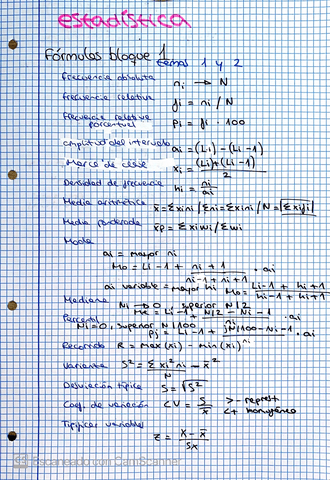 estadística
Fórmulas bloque 1
temas 1 y 2
Frecuencia absoluta ni → N
Frecuencia relativa fi = ni / N
Frecuencia relativa porcentual Pi = fi · 100
Amplitud del intervalo ai = (Li) - (Li-1)
Marca de clase xi = (Li)+(Li-1) / 2
Densidad de frecuencia hi = ni / ai
Media aritmética x̄ = Σxini / Σni = Σxini / N = Σxifi
Media ponderada x̄p = Σxiwi / Σwi
Moda
ai = mayor ni
Mo = Li-1 + ni+1 / ni-1 + ni+1 · ai
ai variable = mayor hi Mo = Li-1 + hi+1 / hi-1 + hi+1
Mediana Ni → superior N/2
Me = Li-1 + N/2 - Ni-1 / ni · ai
Percentil
Ni = 0, superior N/100 Pj = Li-1 + jN/100 - Ni-1 · ai
Recorrido R = max(xi) - min(xi)
Varianza S² = Σxi²ni / N - x̄²
Desviación típica S = √S²
Coef. de variación CV = S / x̄ > - repres+
< + homogéneo
Tipificar variables
Z = x - x̄ / Sx
CS Escaneado con CamScanner